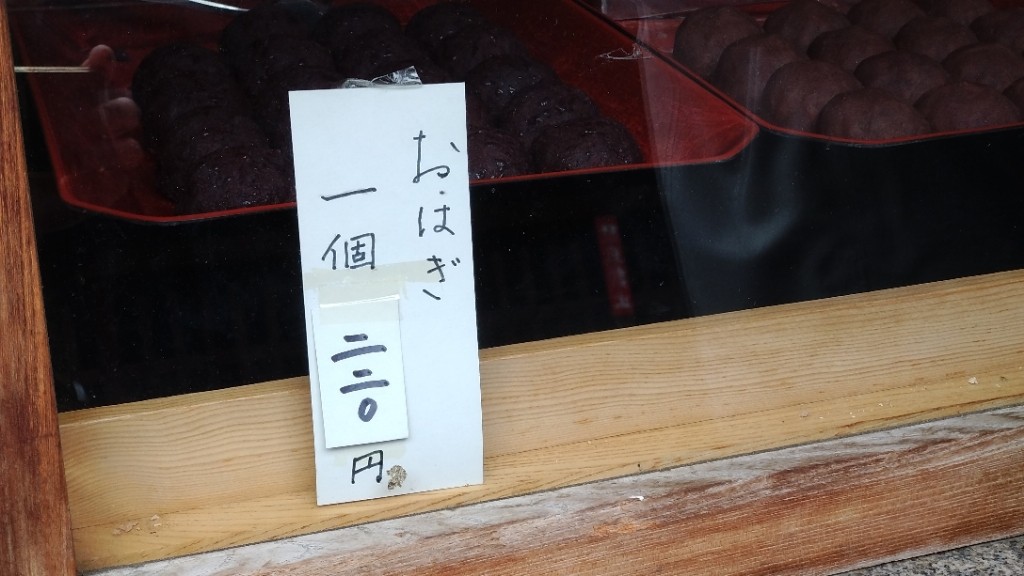 おはぎ
一個
二二〇
円